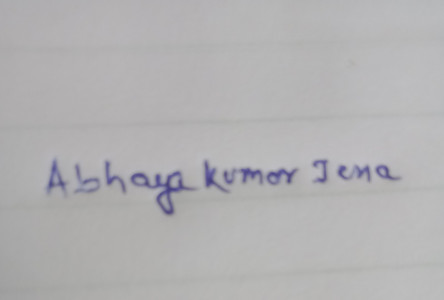 Abhaya kumar Jena